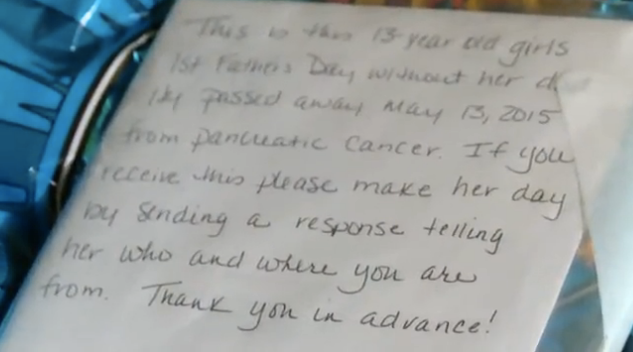 This is this 13 year old girls
1st Father's Day without her
passed away May 13, 2015
from pancreatic cancer. If you
receive this please make her day
by sending a response telling
her who and where you are
from. Thank you in advance!